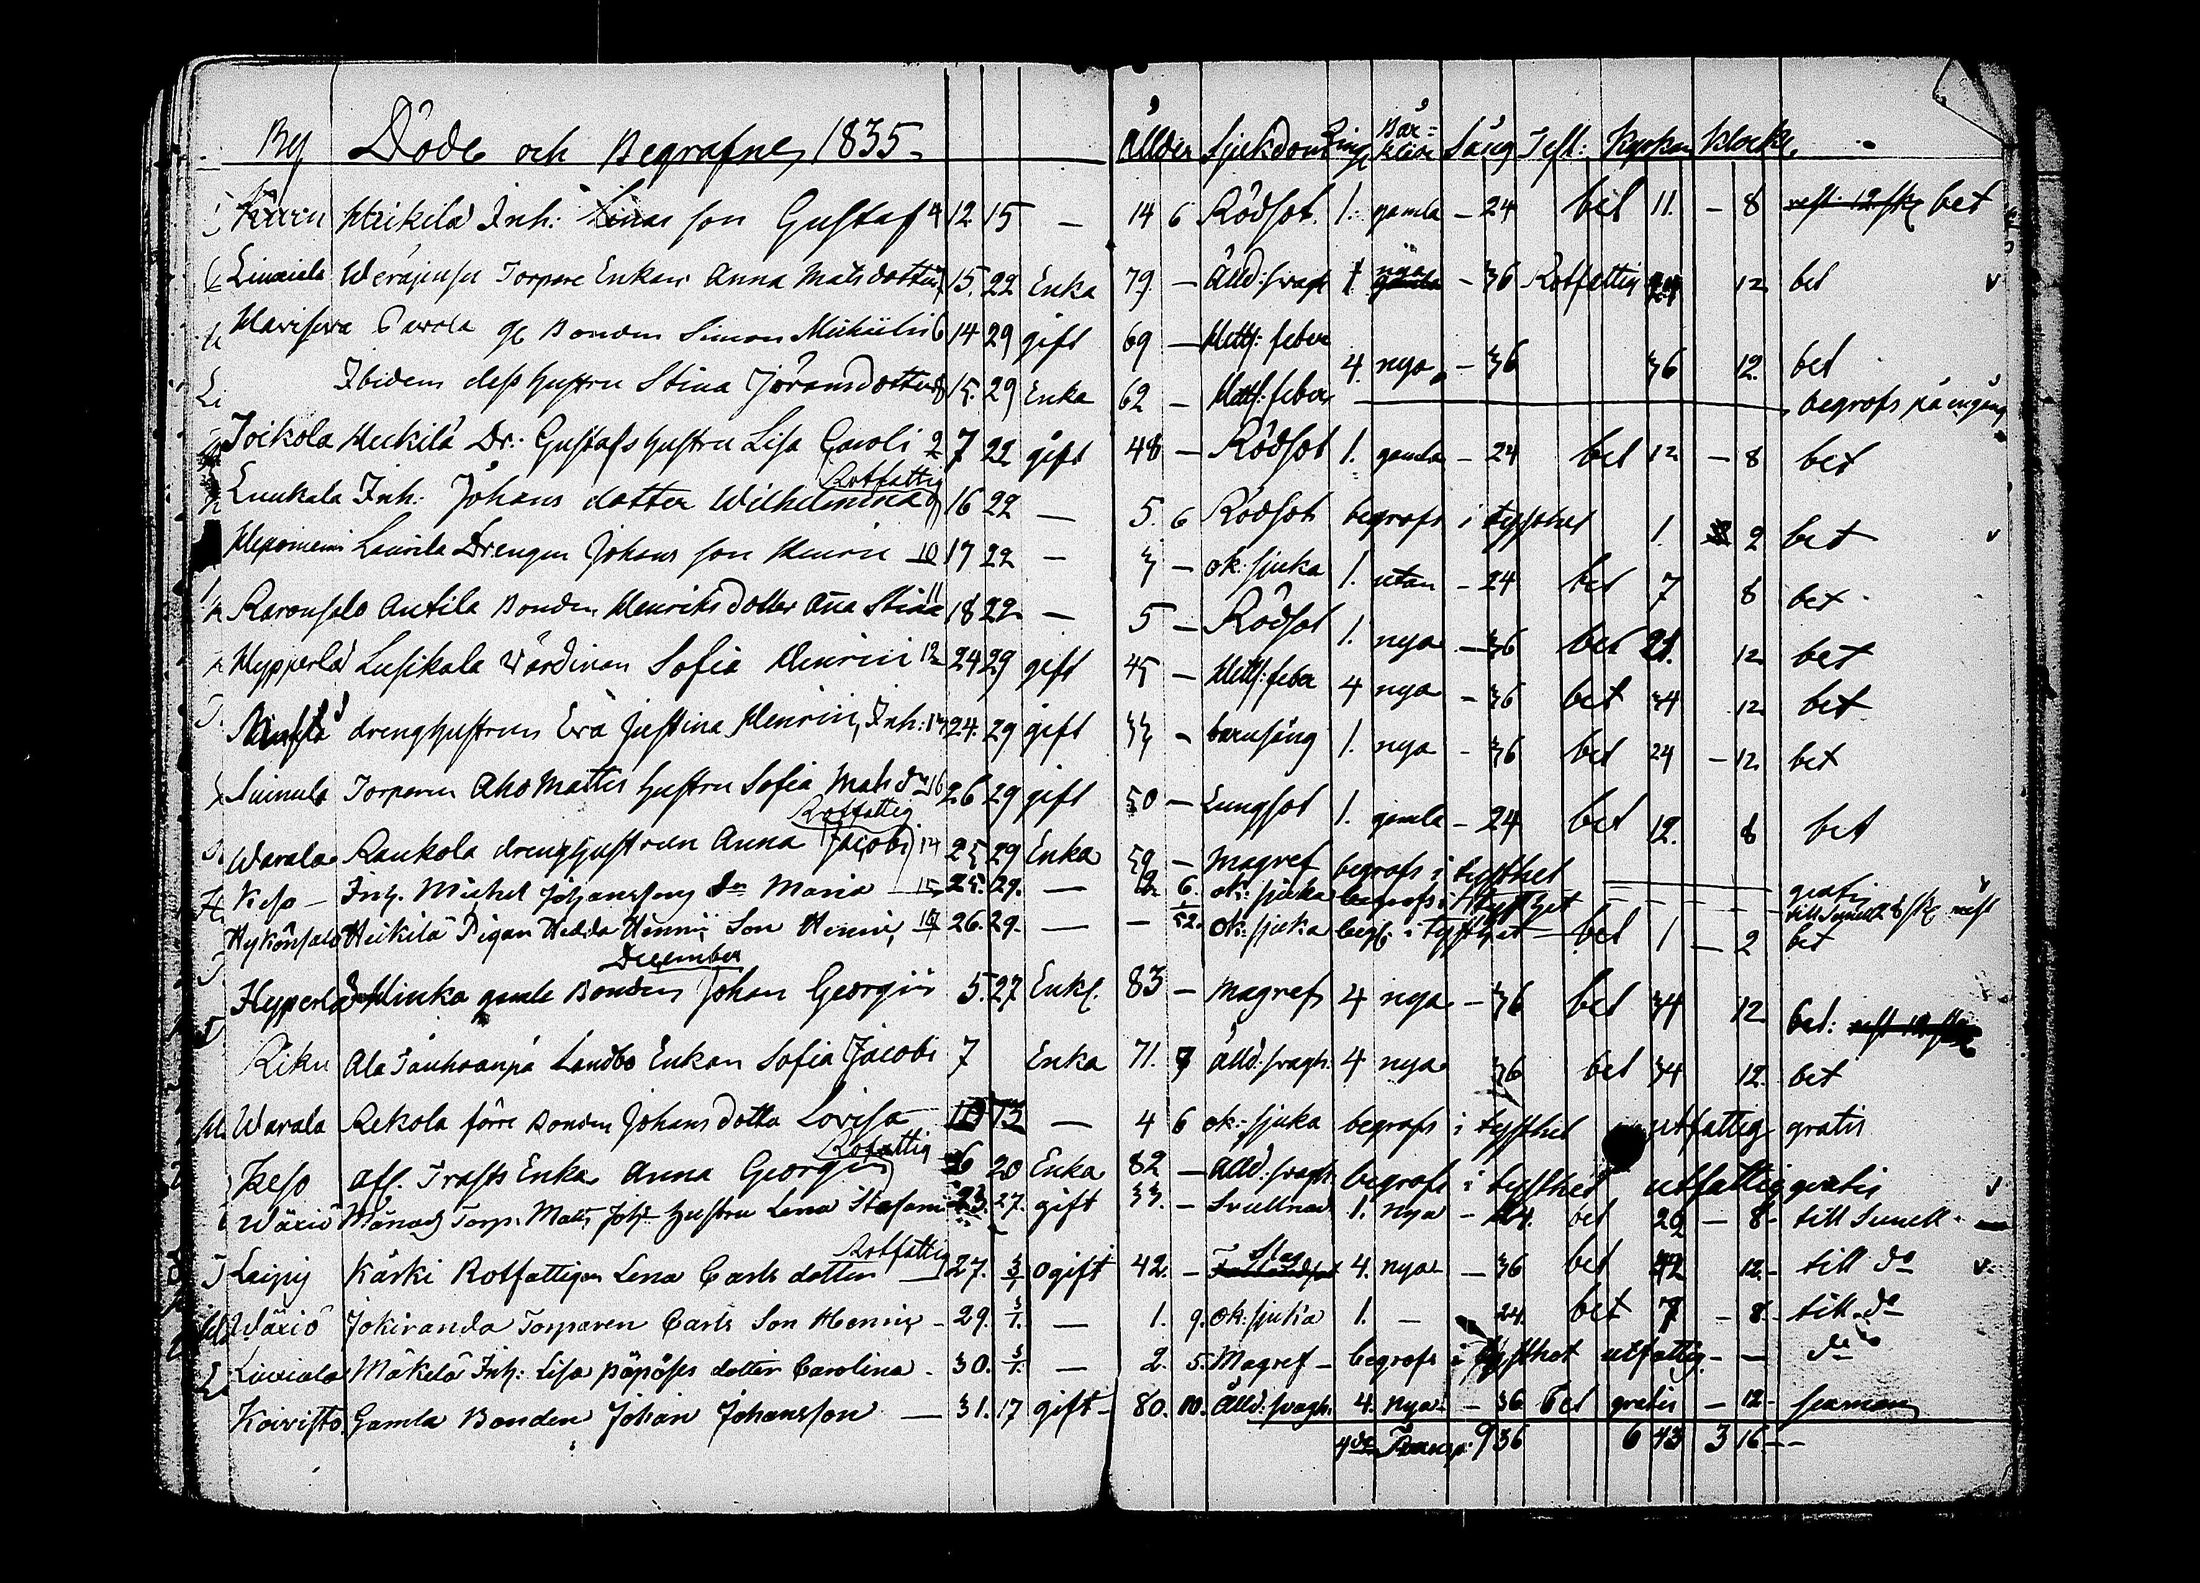 By Döde och Begrafne, 1835. Ållder Sjukdom Ring Bår= kläde Sång Test: Kyrkan Klocks,
Heikilä Inh: son Gustaf 4 12 15 — 14 6 Rödsot. 1. gamla — 24 bet 11. — 8 rest. 12 sk bet
Liuxiala Torpare Enkan Anna Mats dotter 15. 22 Enka 79 — Ålld: svagh 1 nya gamla — 36 Rotfattig 24 12 bet
Bonden Simon 6 14 29 gift 69 — Hetts: feber 4. nya — 36 36 12. bet
Ibidem dess hustru Stina Jöransdotter 8 15. 29 Enka 62 — Hetts: feber — begrofs på engång
Joikola Heikilä Dr: Gustafs hustru Lisa Caroli 2 7 22 gift 48 — Rödsot 1. gamla — 24 bet 12 — 8 bet
Rotfattig
Luukala Inh: Johans dotter Wilhelmina 9 16 22 — 5. 6 Rödsot begrofs i tysthet 1. 2 bet
Laurila Drengen Johans son Henric 10 17 22 — 3 — ok: sjuka 1. utan — 24 bet 7 8 bet
Antila Bonden Henriks dotter Aña Stina 11 18 22 — 5 — Rödsot 1. nya — 36 bet 21. 12 bet
Lusikala Värdinan Sofia Henrici 12 24 29 gift 45 — Hetts: feber 4 nya — 36 bet 34 12 bet
dreng hustrun Eva Justina Henrici, Inh: 13 24. 29 gift 33 — barnsäng 1. nya — 36 bet 24 — 12 bet
Suinula Torparen Aho Mattis hustru Sofia Mats dr 16 26 29 gift 50 — Lungsot 1. gamla — 24 bet 12. 8 bet
Rotfattig
Warala Raukola dreng hustrun Anna Jacobi 14 25 29 Enka 59 — Magref begrofs i tysthet — gratis
Keso — Inh. Michel Johanssons dr Maria — 15 25. 29. — 2 6. ok: sjuka begrofs i tysthet — till Sunell 8 sk rest
Heikilä Pigan Hedda Henrici Son Henric, 26. 29. — — ok: sjuka begr: i tysthet — bet 1 — 2 bet
December
Hypperlä gamle Bonden Johan Georgii 5. 27 Enkl. 83 — Magref 4 nya — 36 bet 34 12 bet:
Riku Ala Landbo Enkan Sofia Jacobi 7 Enka 71. 7 Ålld: svagh. 4 nya 36 bet 34 12. bet
Warala Rekola förre Bonden Johans dotter Lovisa — 10 13 — 4 6 ok: sjuka begrofs i tysthet utfattig gratis
Rotfattig
Keso afl. Trasts Enka Anna Georgii 16 20 Enka 82 — Ålld: svagh. begrofs i tysthet utfattig gratis
Wäxiö Torp: Matts Joh: hustru Lena 23. 27. gift 33. — Svullnad 1. nya — 24. bet 20 — 8 - till Sunell
Rotfattig
Leipig Käski Rotfattigen Lena Carls dotter — 27. 3/1 ogift 42. — Slag 4. nya — 36 bet 42 12. - till do
Wäxiö Jokiranda Torparen Carls Son Henric — 29. 3/1. — 1. 9. ok: sjuka 1. — 24. bet 7 — 8 - till do
Liuxiala Mäkelä Inh: Lisa dotter Carolina — 30. 3/1. — 2. 5. Magref — begrofs i tysthet utfattig — — do
Koivisto Gamla Bonden Johan Johansson — 31. 17 gift — 80. 10. Ålld: svagh. 4. nya — 36 bet gratis — 12 -
Transp: 9 36 6 43 3 16 — -